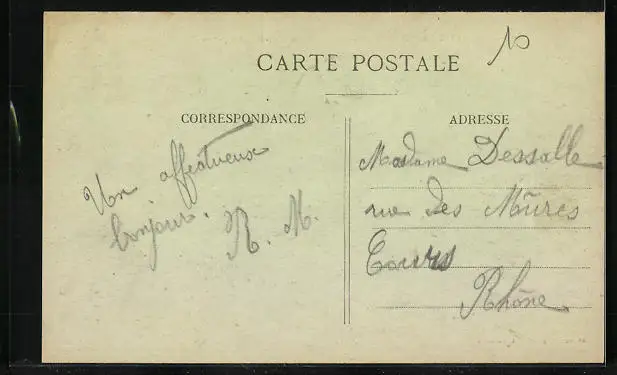 10
CARTE POSTALE
CORRESPONDANCE
ADRESSE
Un affectueux
bonjour.
R. M.
Madame Dessalle
rue des Mûres
Cours
Rhône